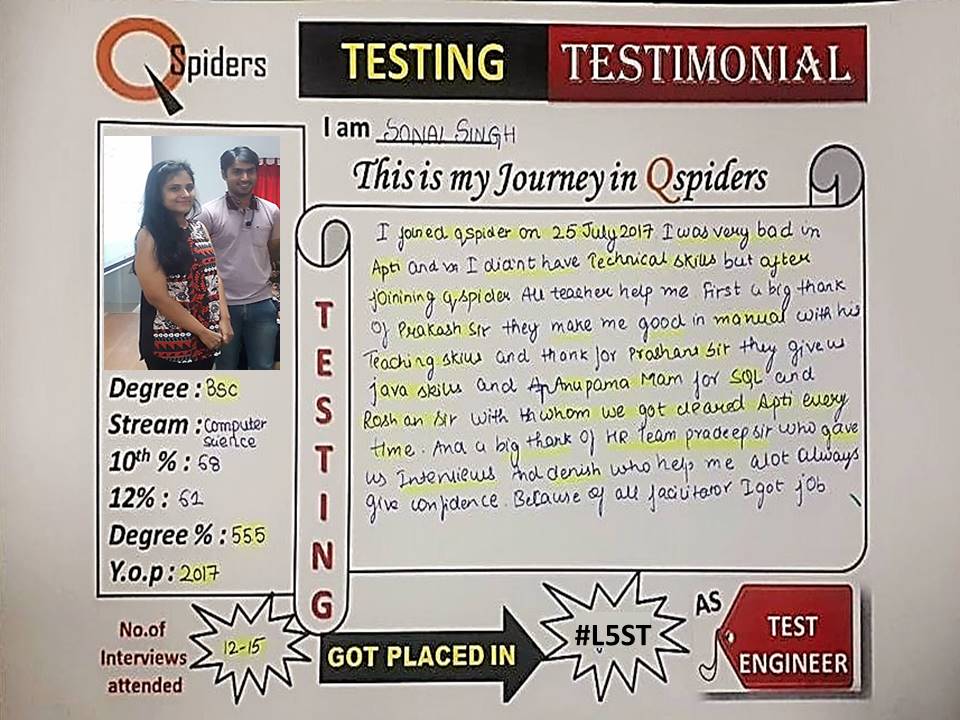 QSpiders
TESTING TESTIMONIAL
I am SONAL SINGH
This is my Journey in Qspiders
I joined qspider on 25 July 2017 I was very bad in
Apti and I didnt have Technical skills but after
joinining q,spider All teacher help me First a big thank
Of Prakash sir they make me good in manual with his
Teaching skills and thank for Prashant Sir they give us
java skills and Anupama Mam for SQL and
Roshan Sir with whom we got cleared Apti every
time. And a big thank Of HR Team pradeep sir who gave
us Interviews And denish who help me alot always
give confidence. Because of all facilitator I got job
TESTING
Degree : BSC
Stream : Computer
science
10th % : 68
12% : 51
Degree % : 555
Y.o.p : 2017
No.of
Interviews
attended
12-15
GOT PLACED IN
#L5ST
AS
TEST
ENGINEER